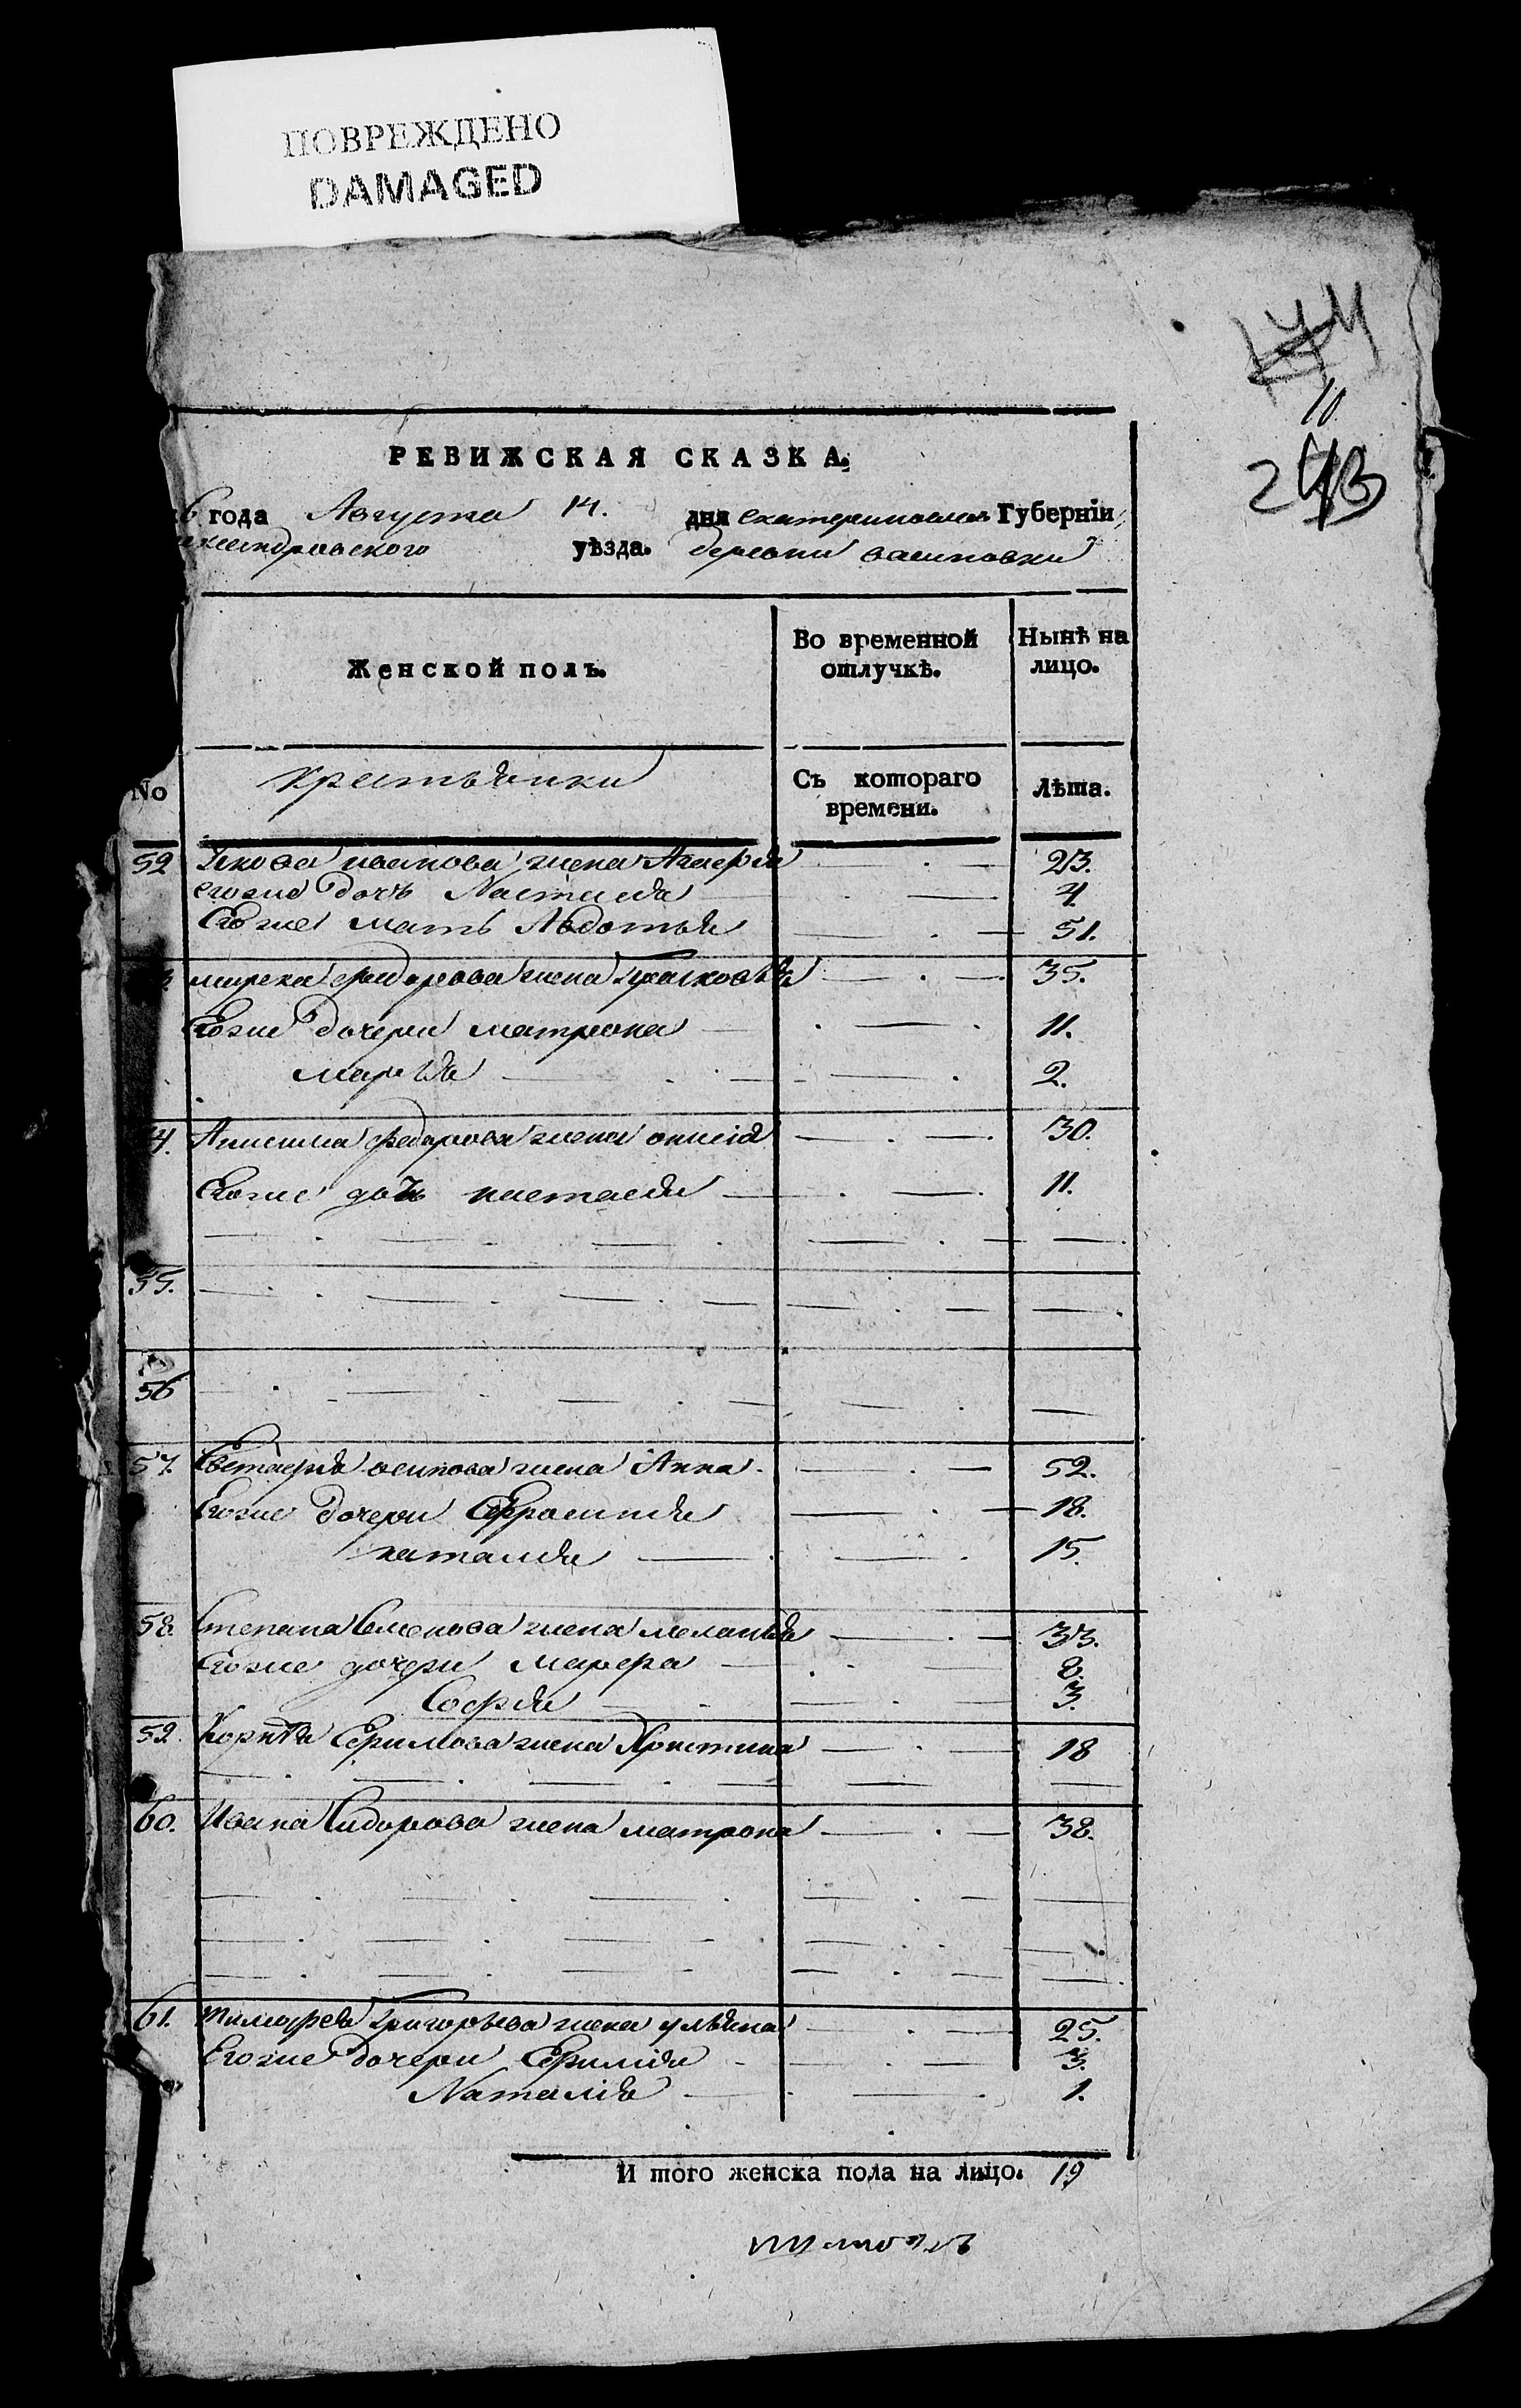 ПОВРЕЖДЕНО
DAMAGED
10
243
РЕВИЖСКАЯ СКАЗКА.
6 года Августа 14. дня екатеринослав Губерніи
ександровского уѣзда. деревни васиповки
Женской полъ.
Во временной отлучкѣ.
Нынѣ на лицо.
No крестьянки
Съ котораго времени.
Лѣта.
52 Якова иванова жена Агаерья 23.
его же дочь Настасья 4.
Его же мать Авдотья 51.
мирена федорова жена Прасковья 35.
Его же дочери матрона 11.
марья 2.
4. Анисима федорова жена онисія 30.
Его же дочь настасья 11.
55.
56
57. Евтаерья осипова жена Анна 52.
Его же дочери Ефросинья 18.
наталья 15.
58. Степана Семенова жена меланья 33.
Его же дочери Марфа 8.
Софья 3.
59. Корнѣя Ефимова жена Христина 18
60. Ивана Сидорова жена матрона 38.
61. тимофея Григорьева жена ульяна 25.
Его же дочери Ефимія 3.
Наталія 1.
И того женска пола на лицо. 19